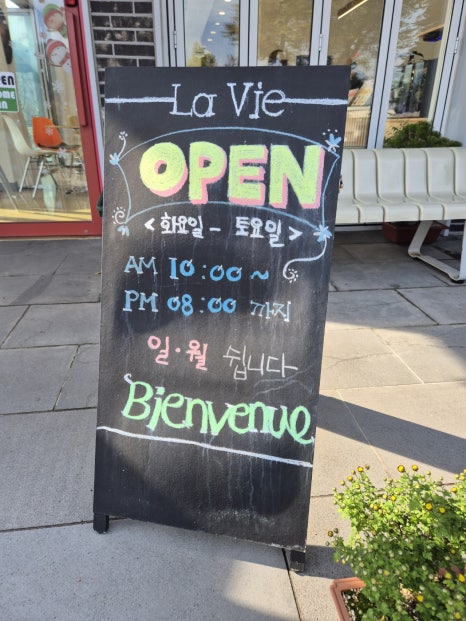 La Vie
OPEN
< 화요일 - 토요일 >
AM 10:00 ~
PM 08:00 까지
일·월 쉽니다
Bienvenue